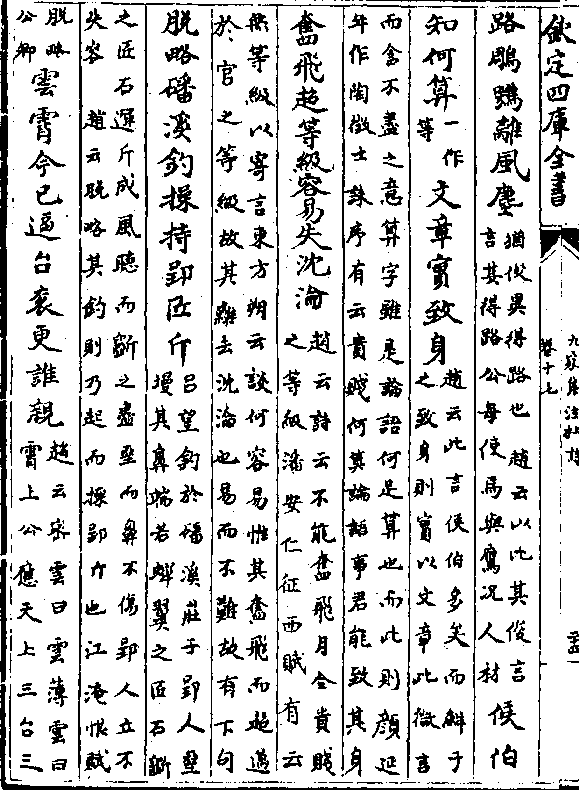 欽定四庫全書
九家集注杜詩
卷十七
路鵰鶚離風塵
猶俊異得路也 趙云以比其俊言
言其得路公每使馬與鷹況人材
侯伯
知何算
一作
等
文章實致身
趙云此言侯伯多矣而鮮于
之致身則實以文章此微言
而含不盡之意算字雖是論語何足算也而此則顏延
年作陶徵士誄序有云貴賤何算論語事君能致其身
奮飛超等級容易失沈淪
趙云詩云不能奮飛月令貴賤
之等級潘安仁征西賦有云
無等級以寄言東方朔云談何容易惟其奮飛而超邁
於官之等級故其離去沈淪也易而不難故有下句
脱略磻溪釣操持郢匠斤
吕望釣於磻溪莊子郢人堊
墁其鼻端若蠅翼之匠石斲
之匠石運斤成風聽而斲之盡堊而鼻不傷郢人立不
失容 趙云脱略其釣則乃起而操郢斤也江淹恨賦
脱略
公卿
雲霄今已逼台衮更誰親
趙云雲曰雲薄雲曰
霄上公應天上三台三